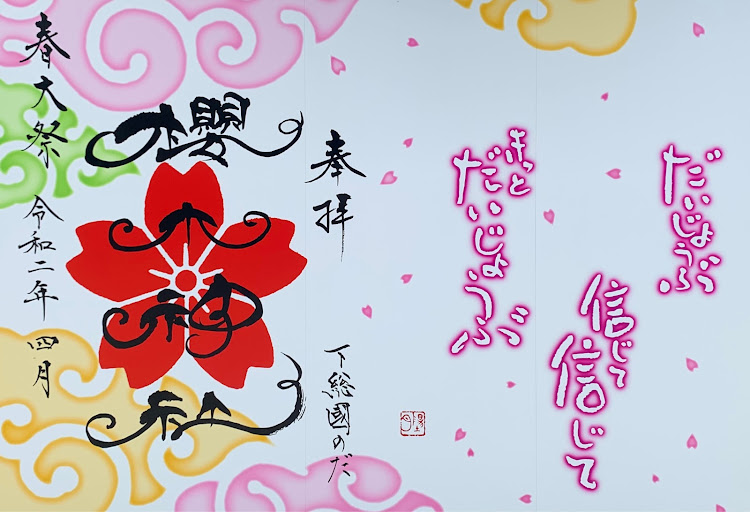 だいじょうぶ
信じて
信じて
きっと
だいじょうぶ
奉拝
下総國のだ
櫻木神社
春大祭 令和二年 四月